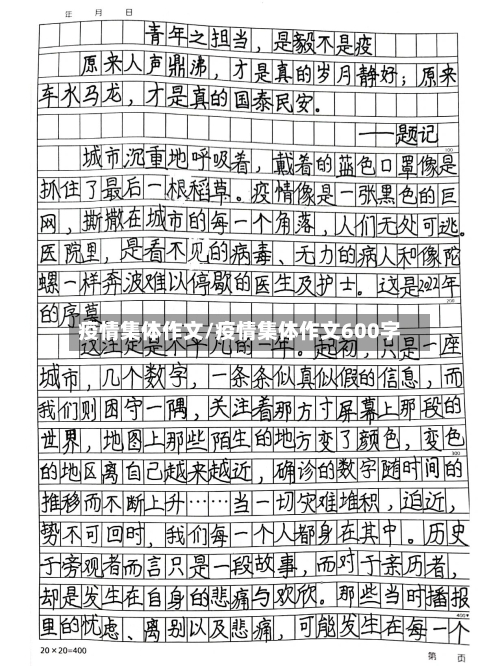 年 月 日
青年之担当，是毅不是疫
原来人声鼎沸，才是真的岁月静好；原来
车水马龙，才是真的国泰民安。
——题记
100
城市沉重地呼吸着，戴着的蓝色口罩像是
抓住了最后一根稻草。疫情像是一张黑色的巨
网，撕撒在城市的每一个角落，人们无处可逃。
医院里，是看不见的病毒、无力的病人和像陀
螺一样奔波难以停歇的医生及护士。这是2022年
200
的序幕
疫情集体作文/疫情集体作文600字
这注定是不平凡的一年。起初，只是一座
城市，几个数字，一条条似真似假的信息，而
我们则困守一隅，关注着那方寸屏幕上那段的
世界，地图上那些陌生的地方变了颜色，变色
300
的地区离自己越来越近，确诊的数字随时间的
推移而不断上升……当一切灾难堆积，迫近，
势不可回时，我们每一个人都身在其中。历史
于旁观者而言只是一段故事，而对于亲历者，
却是发生在自身的悲痛与欢欣。那些当时播报
400
里的忧虑、离别以及悲痛，可能发生在每一个
20×20=400
第 页